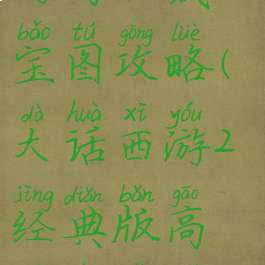 bǎo tú gōng lüè
宝图攻略(
dà huà xī yóu
大话西游2
jīng diǎn bǎn gāo
经典版高